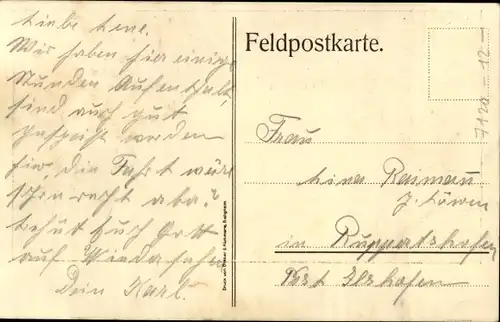 Liebe Lene.
Wir haben hier einige
Stunden Aufenthalt,
sind auch gut
gespeist worden
hier, die Fahrt wäre
schon recht aba.
behüt Euch Gott
auf Wiedersehn
Dein Karl.
Feldpostkarte.
Frau
Lina Baumann
z. Löwen
in Ruppertshofen
Post Ilshofen
7120 - 12 -